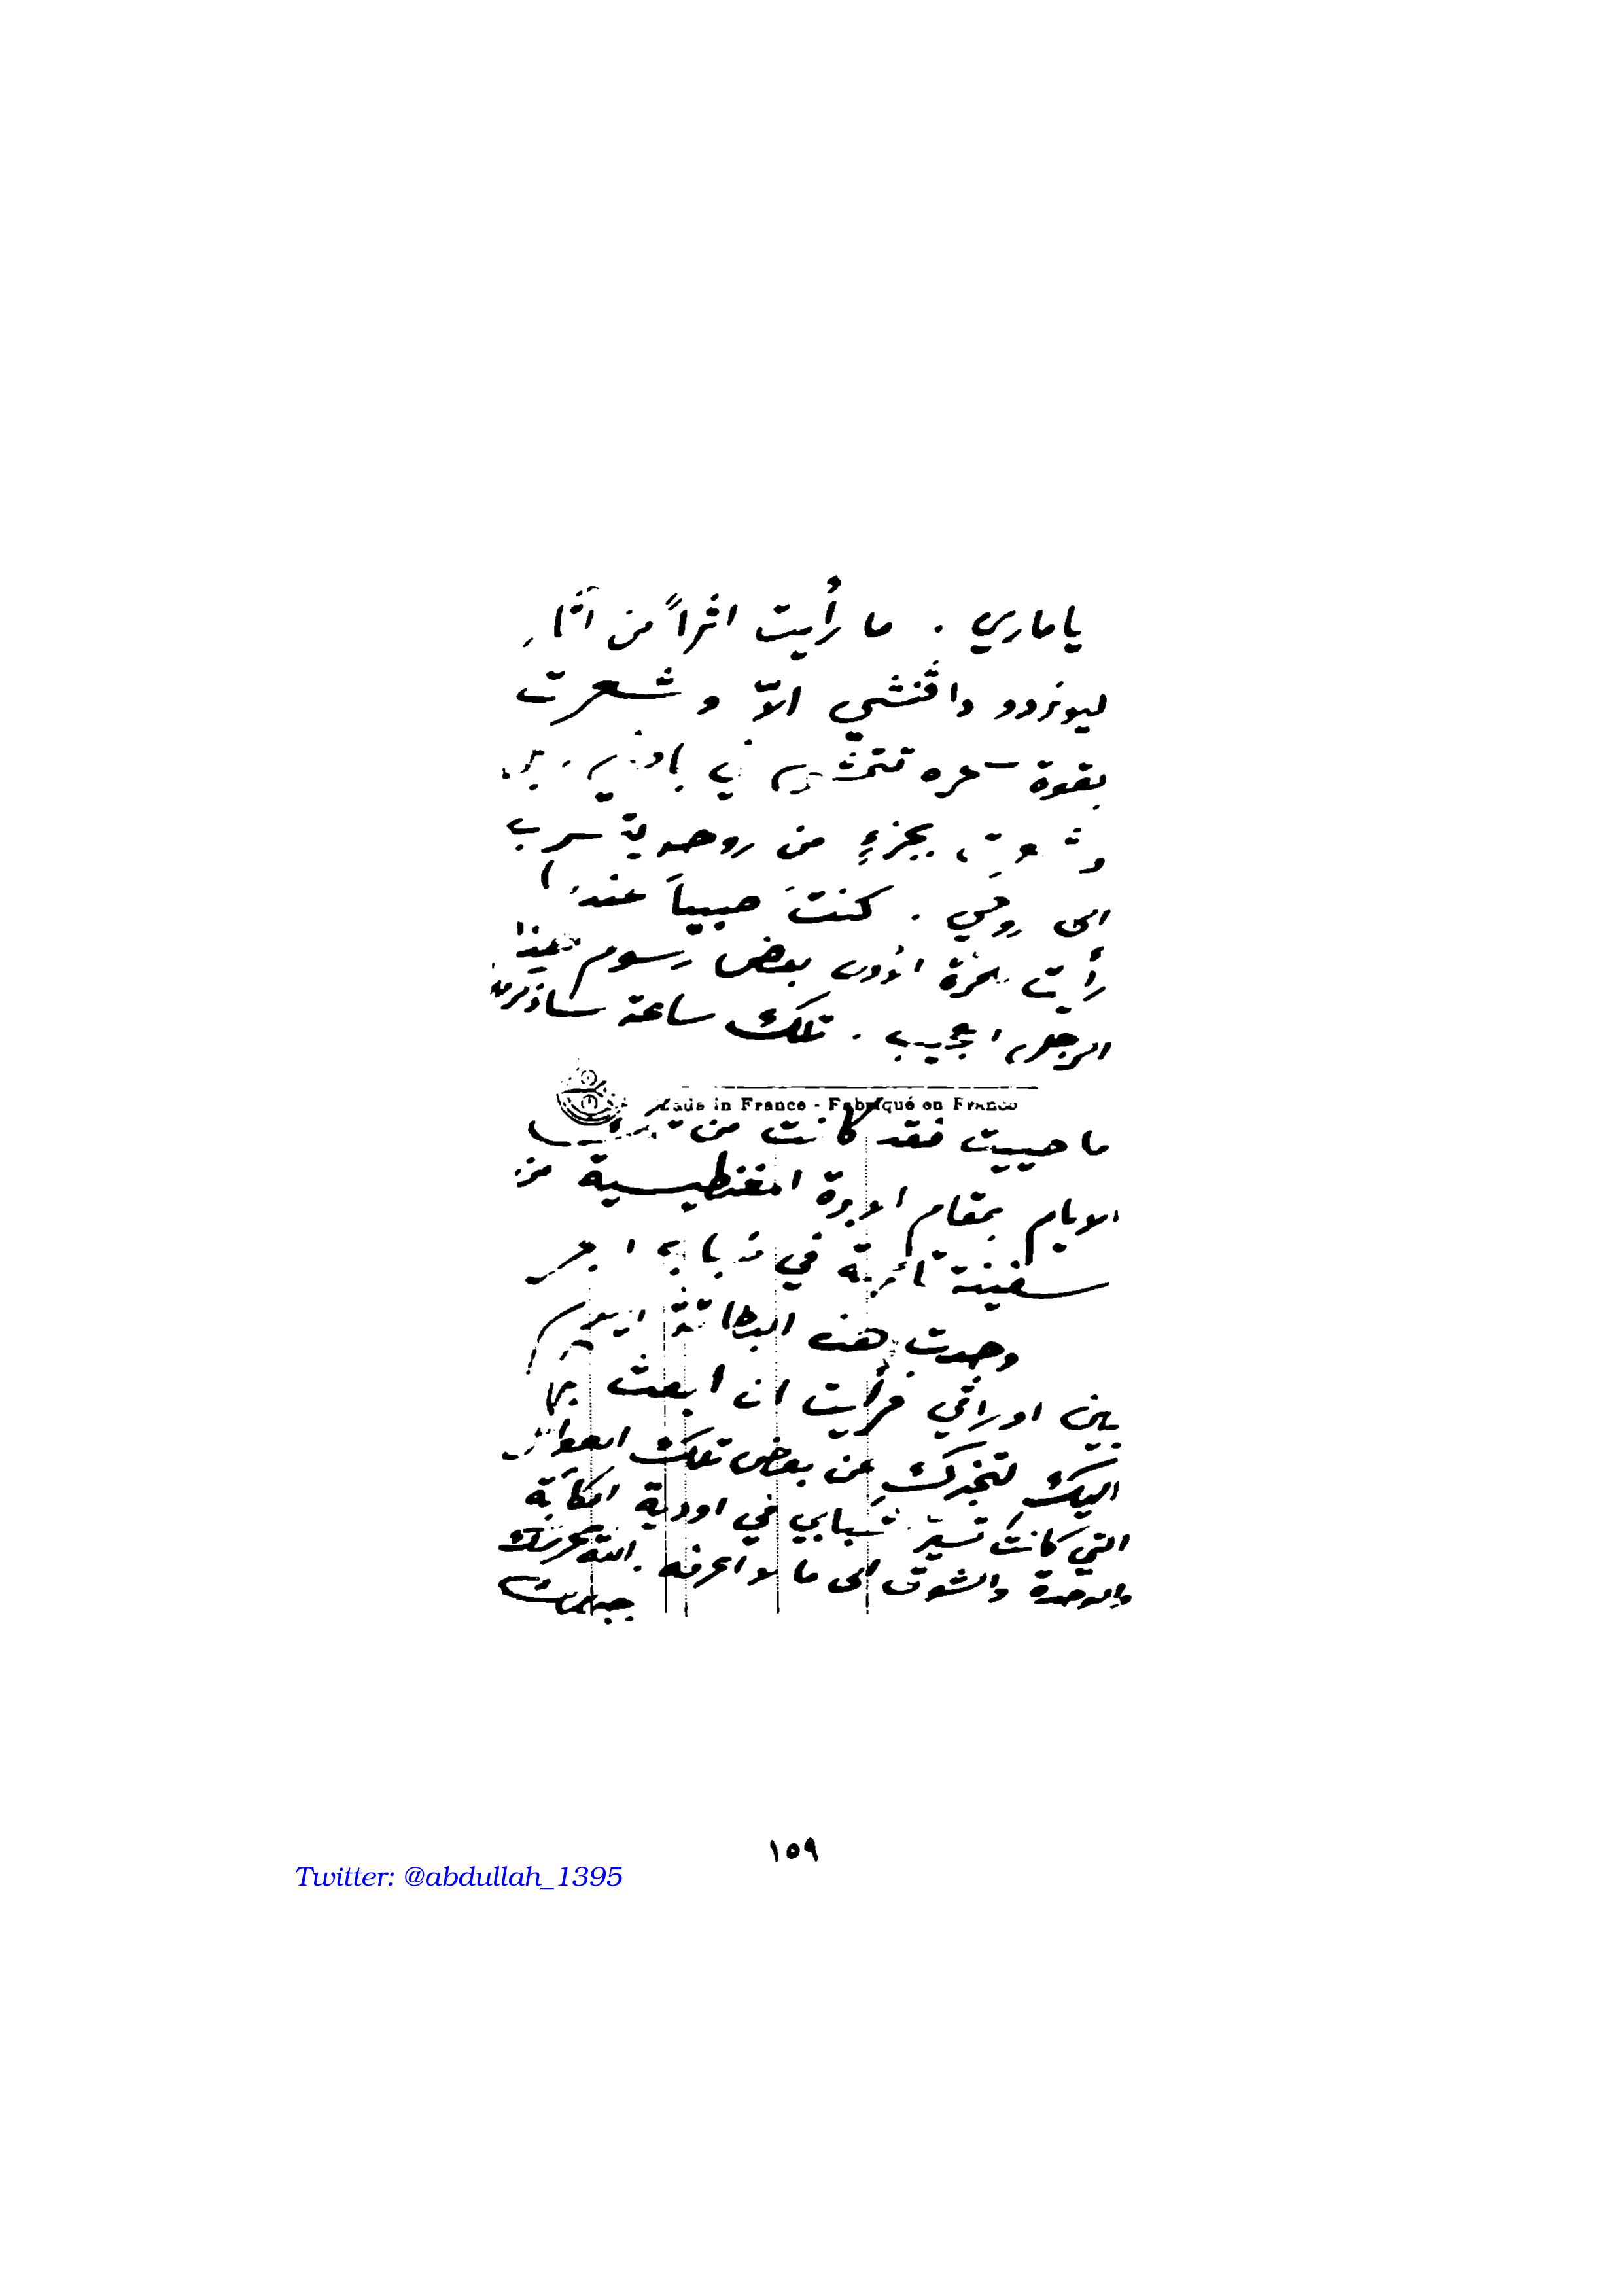 يا ماري . ما رأيت اثراً من آثار
ليونردو دافنشي الاّ وشعرت
بقوة سحره تتمشى في باطني ، بل
وشعرت بجزءٍ من روحه يتسرب
الى روحي . كنتَ صبياً عندما
رأيت للمرة الاولى بعض رسوم هذا
الرجل العجيب . تلك ساعة ساذكرها
Made in France - Fabriqué en France
ما حييت فقد كانت من تلك
الايام بمقام الابرة المغنطيسية من
سفينة تائهة في ضباب البحر
وجدت هذه البطاقة اليوم
بين اوراقي فرأيت ان ابعث بها
اليك لتخبركِ عن بعض تلك العوامل
التي كانت تسيّر شبابي في اودية الكآبة
والوحدة والشوق الى ما لا اعرفه . الله يحرسك
جبران
١٥٩
Twitter: @abdullah_1395